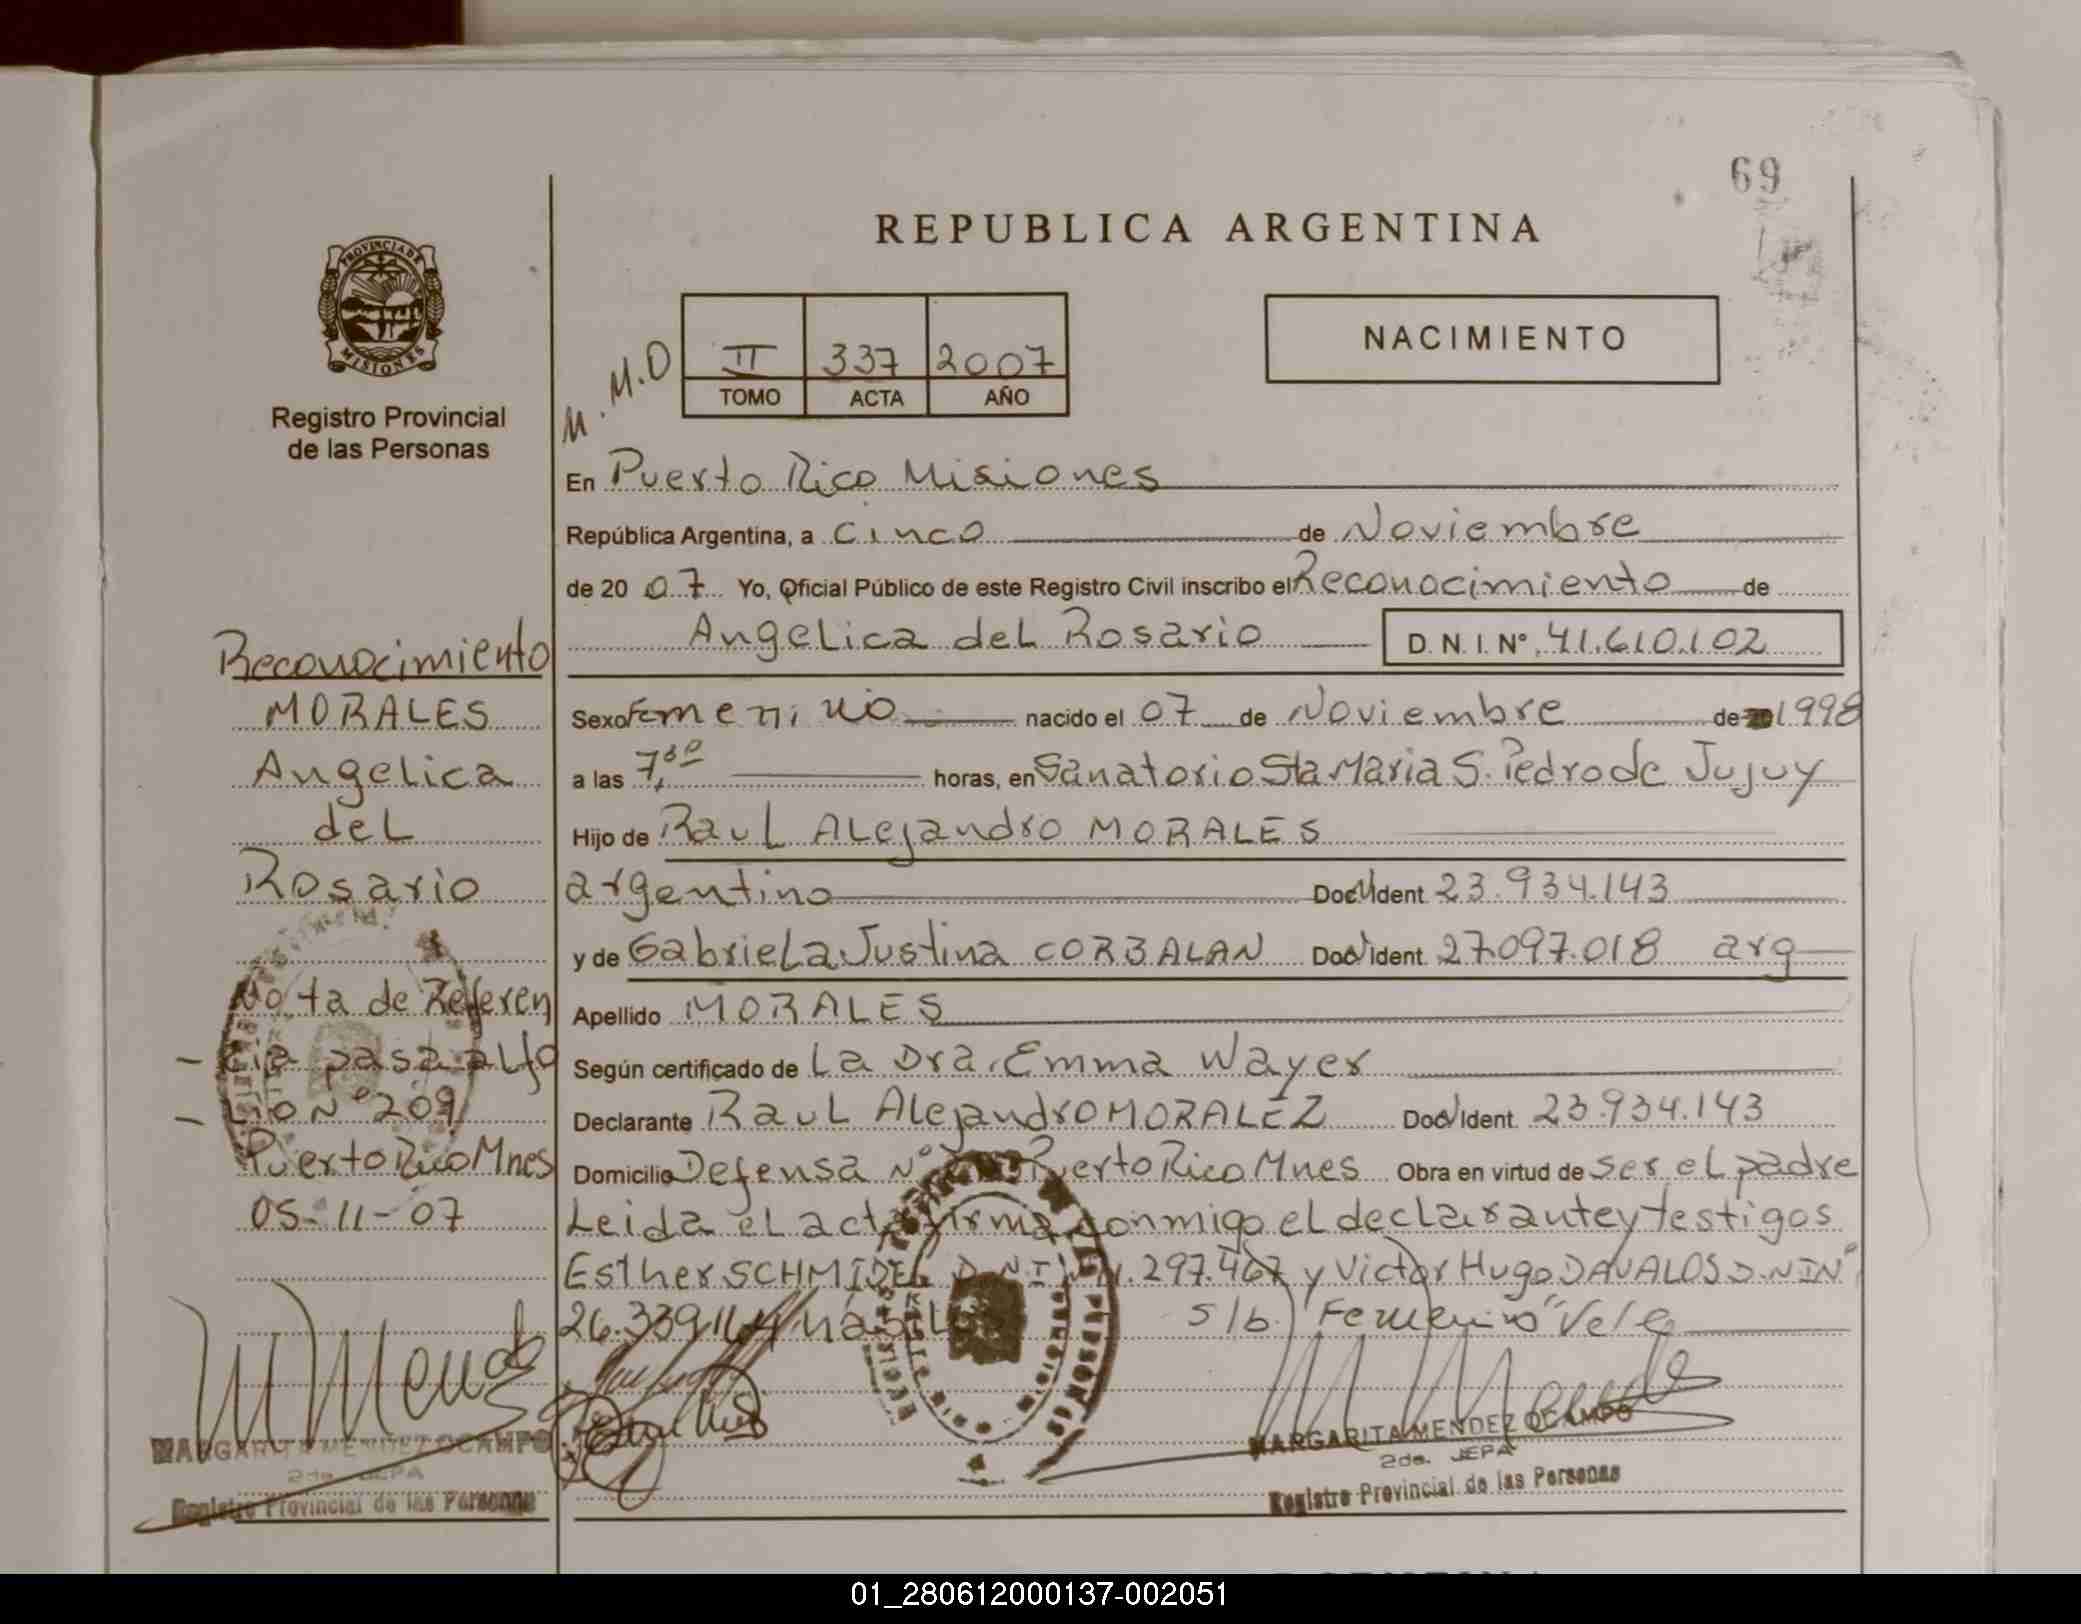 69
REPUBLICA ARGENTINA
PROVINCIA DE
MISIONES
Registro Provincial
de las Personas
M.M.O
II 337 2007
TOMO ACTA AÑO
NACIMIENTO
En Puerto Rico Misiones
República Argentina, a cinco de Noviembre
de 20 07 Yo, Oficial Público de este Registro Civil inscribo el Reconocimiento de
Angelica del Rosario D.N.I. Nº 41.610.102
Sexo Femenino nacido el 07 de Noviembre de 1998
a las 7,30 horas, en Sanatorio Sta Maria S. Pedro de Jujuy
Hijo de Raul Alejandro MORALES
argentino Doc. Ident. 23.934.143
y de Gabriela Justina CORBALAN Doc. Ident. 27.097.018 arg
Apellido MORALES
Según certificado de La Dra. Emma Wayer
Declarante Raul Alejandro MORALEZ Doc. Ident. 23.934.143
Domicilio Defensa Nº Puerto Rico Mnes Obra en virtud de ser el padre
Leida el acta firma conmigo el declarante y testigos
Esther SCHMIDEL D.N.I. 297.467 y Victor Hugo DAVALOS D.NI Nº
26.339.164 s/b. "Femenino" Vele
MARGARITA MENDEZ OCAMPO
2da. JEFA
Registro Provincial de las Personas
Reconocimiento
MORALES
Angelica
del
Rosario
Nota de Referen
- cia pasa al fo
- lio Nº 209
Puerto Rico Mnes
05-11-07
MARGARITA MENDEZ OCAMPO
2da. JEFA
Registro Provincial de las Personas
01_280612000137-002051